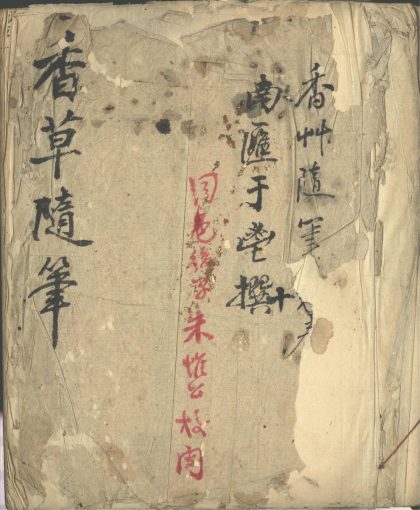 香艸隨筆
南匯于鬯撰
同邑後學朱惟公校閱
香草隨筆